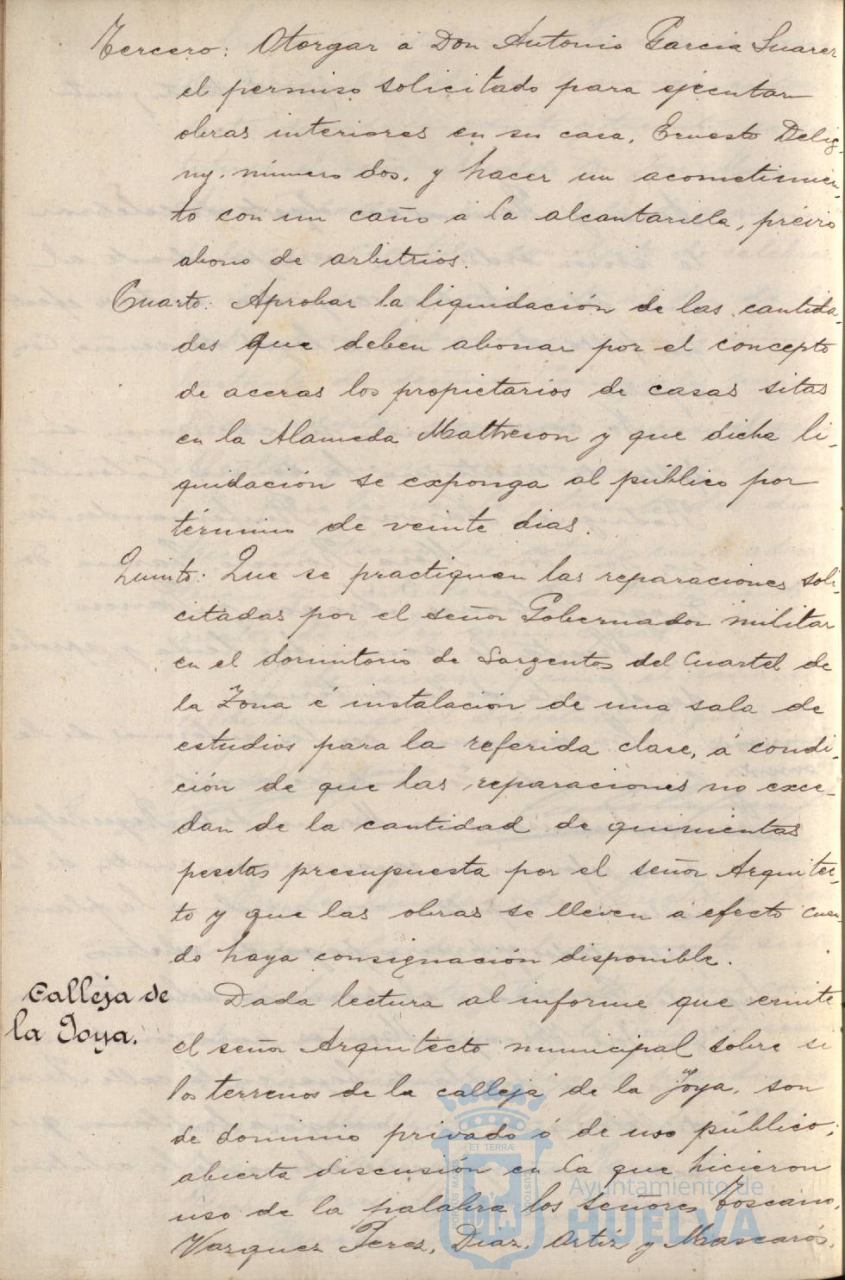 Tercero: Otorgar a Don Antonio Garcia Suarez
el permiso solicitado para ejecutar
obras interiores en su casa, Ernesto Delig-
ny, número dos, y hacer un acometimien-
to con un caño á la alcantarilla, prévio
abono de arbitrios.
Cuarto: Aprobar la liquidación de las cantida-
des que deben abonar por el concepto
de aceras los propietarios de casas sitas
en la Alameda Mattreson y que dicha li-
quidación se exponga al público por
término de veinte dias.
Quinto: Que se practiquen las reparaciones soli-
citadas por el señor Gobernador militar
en el dormitorio de Sargentos del Cuartel de
la Zona é instalación de una sala de
estudios para la referida clase, á condi-
ción de que las reparaciones no exce-
dan de la cantidad de quinientas
pesetas presupuesta por el señor Arquitec-
to y que las obras se lleven á efecto cuan-
do haya consignación disponible.
Calleja de
la Joya.
Dada lectura al informe que emite
el señor Arquitecto municipal sobre si
los terrenos de la calleja de la Joya, son
de dominio privado ó de uso público;
abierta discusión en la que hicieron
uso de la palabra los señores Toscano,
Vazquez Perez, Diaz, Ortiz y Mascarós,
ET TERRÆ
Ayuntamiento de
HUELVA